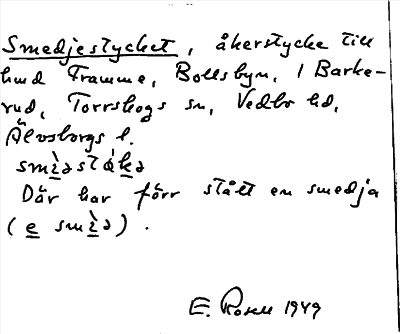 Smedjestycket, åkerstycke till
hmd Framme, Bollsbyn, 1 Barke-
rud, Torrskogs sn, Vedbo hd,
Älvsborgs l.
smèdstáka
Där har förr stått en smedja
(e smèd).
E. Rosell 1949